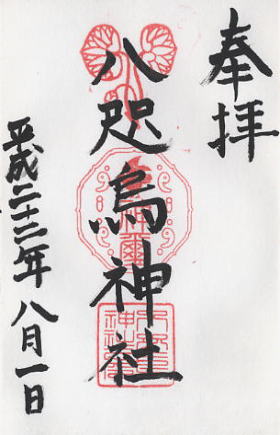 奉拝
八咫烏神社
平成二十三年八月一日